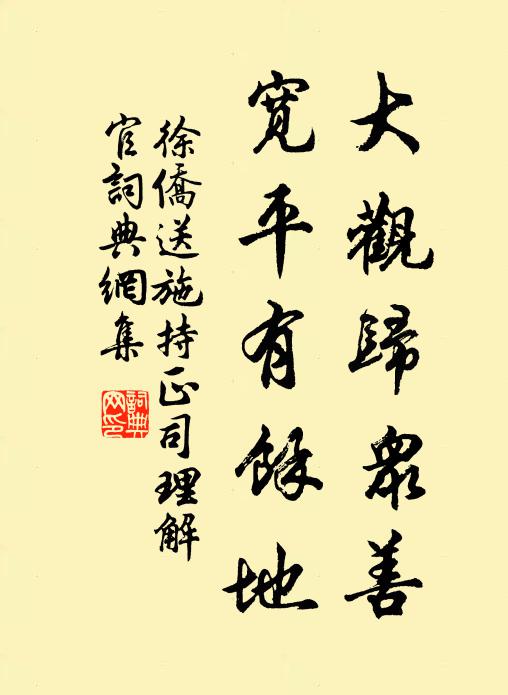 大觀歸眾善
寬平有餘地
徐僑送施持正司理解
官詞典網集
詞典
网印